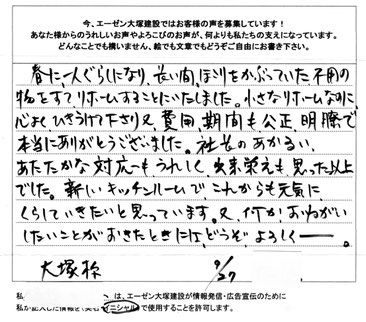 今、エーゼン大塚建設ではお客様の声を募集しています！
あなた様からのうれしいお声やよろこびのお声が、何よりも私たちの支えになっています。
どんなことでも構いません、絵でも文章でもどうぞご自由にお書き下さい。
春に、一人ぐらしになり、長い間、ほこりをかぶっていた不用の
物をすてリホームすることにいたしました。小さなリホームなのに
心よくひきうけて下さり又、費用、期間も公正、明瞭で
本当にありがとうございました。社長のあかるい、
あたたかな対応もうれしく、出来栄えも思った以上
でした。新しいキッチンルームで、これからも元気に
くらしていきたいと思っています。又、何か、おねがい
したいことがおきたときには、どうぞ よろしくー。
大塚
9/27
私 は、エーゼン大塚建設が情報発信・広告宣伝のために
私が記入した情報を イニシャル で使用することを許可します。